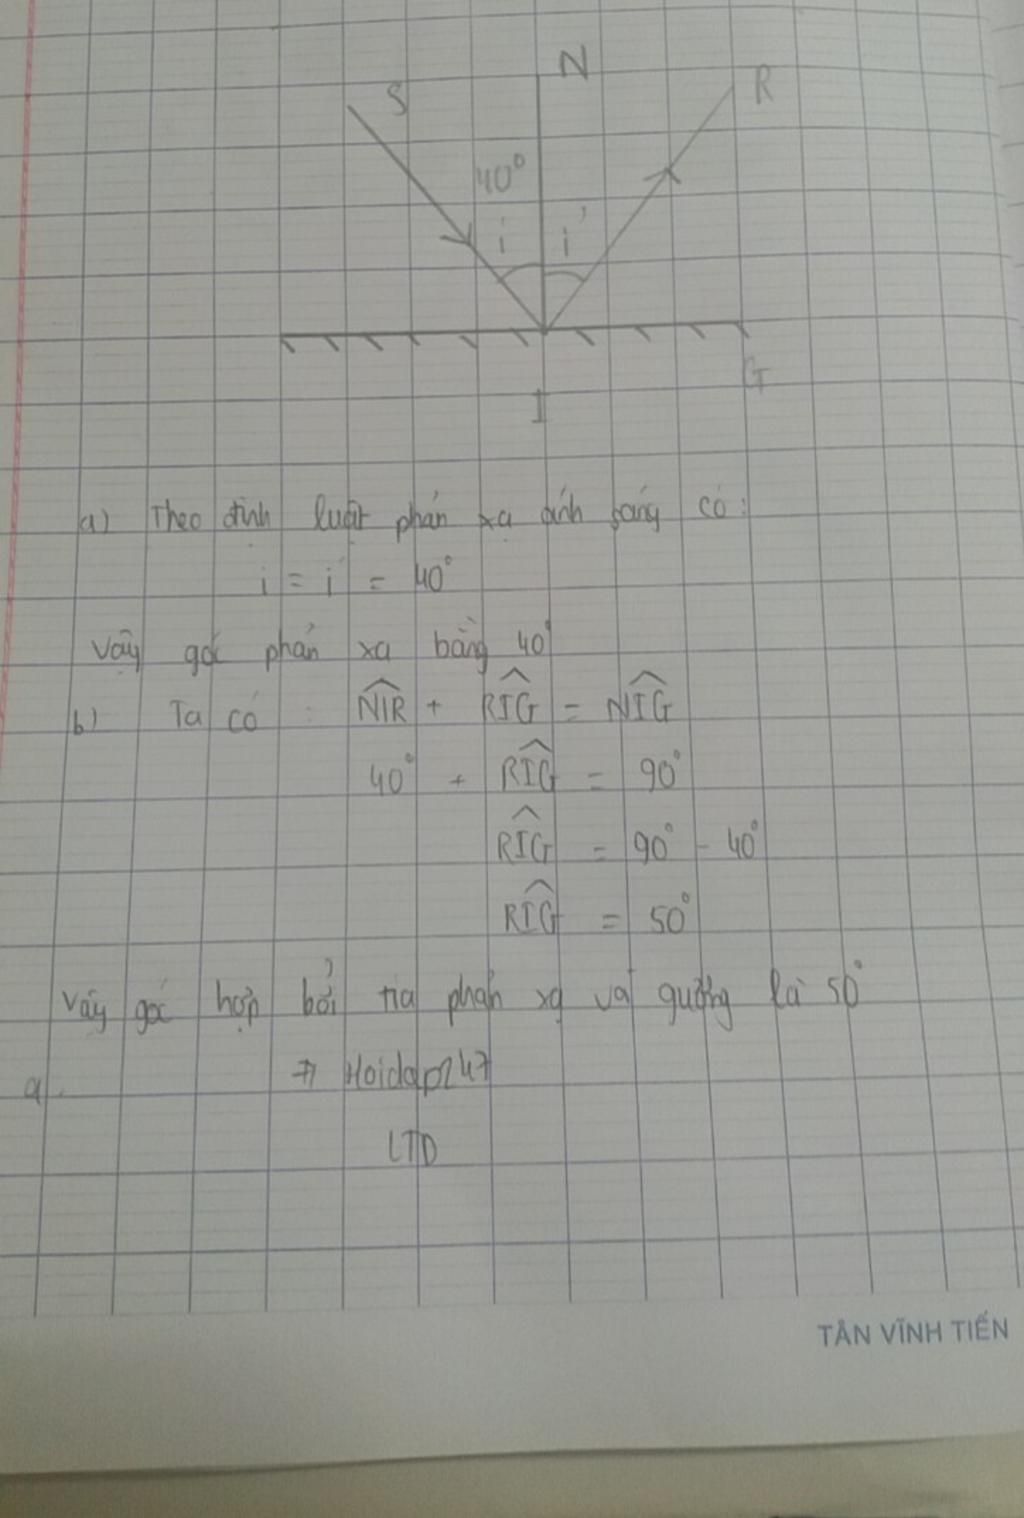 S N R
40°
i i'
G
I
a) Theo định luật phản xạ ánh sáng có:
i = i' = 40°
Vậy góc phản xạ bằng 40°
b) Ta có: NIR + RIG = NIG
40° + RIG = 90°
RIG = 90° - 40°
RIG = 50°
Vậy góc hợp bởi tia phản xạ và gương là 50°
a
Hoidap247
LTD
TÂN VĨNH TIẾN